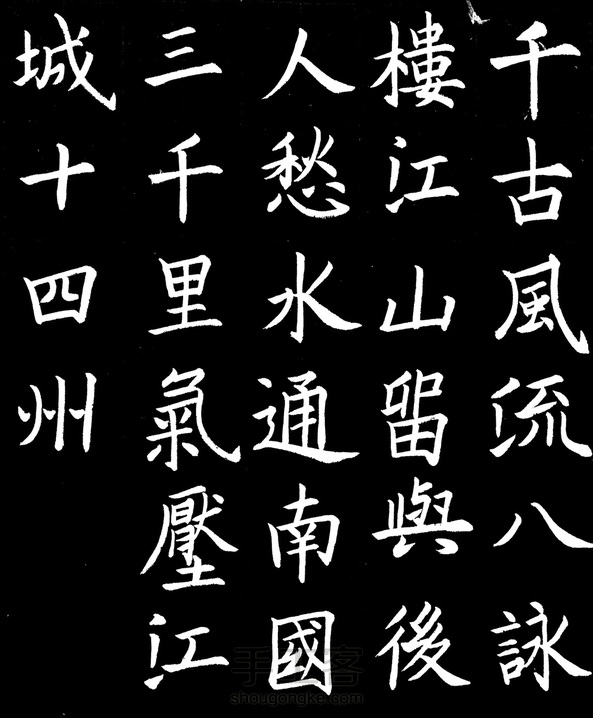 千古風流八詠
樓江山留與後
人愁水通南國
三千里氣壓江
城十四州
手工客
shougongke.com